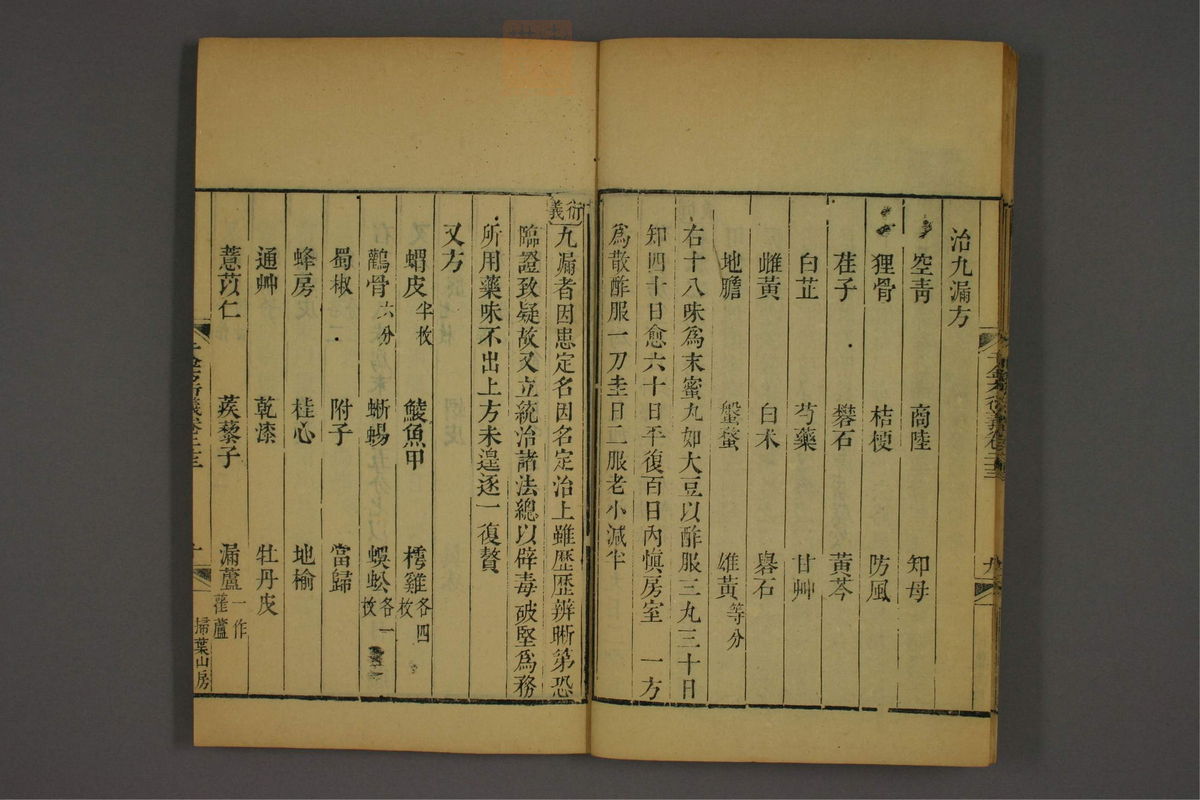 治九漏方
空青 商陸 知母
狸骨 桔梗 防風
荏子 礬石 黃芩
白芷 芍藥 甘艸
雌黃 白朮 礜石
地膽 盤蝥 雄黃等分
右十八味爲末蜜丸如大豆以酢服三丸三十日
知四十日愈六十日平復百日內愼房室 一方
爲散酢服一刀圭日二服老小減半
衍義 九漏者因患定名因名定治上雖歷歷辨晰第恐
臨證致疑故又立統治諸法總以辟毒破堅爲務
所用藥味不出上方未遑逐一復贅
又方
蝟皮半枚 鯪魚甲 樗雞各四枚
鸛骨六分 蜥蜴 蜈蚣各一枚
蜀椒 附子 當歸
蜂房 桂心 地榆
通艸 乾漆 牡丹皮
薏苡仁 蒺藜子 漏蘆一作藋蘆
掃葉山房